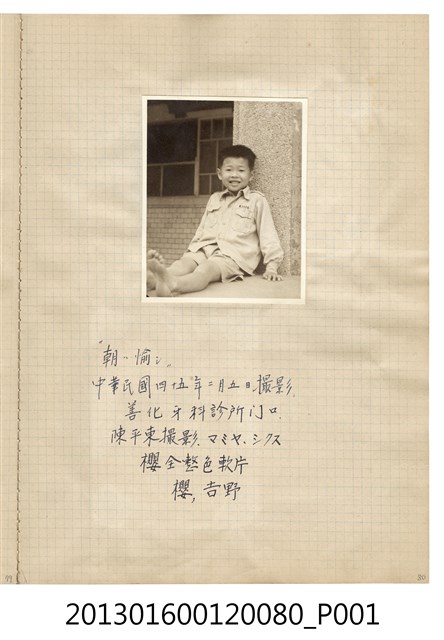 "朝愉"
中華民國四五年二月五日撮影.
善化牙科診所门口.
陳平東撮影.マミヤ.シクス
櫻全整色軟片
櫻,吉野
80
201301600120080_P001